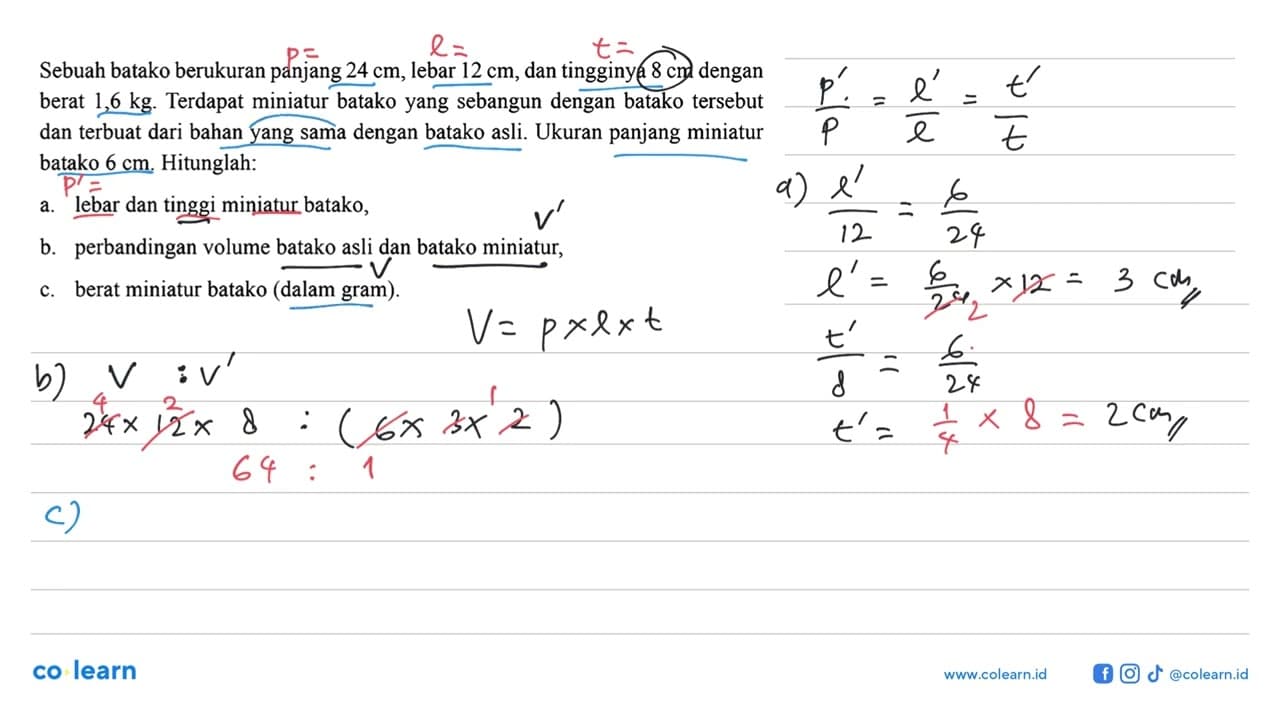 p= l= t=
Sebuah batako berukuran panjang 24 cm, lebar 12 cm, dan tingginya 8 cm dengan
berat 1,6 kg. Terdapat miniatur batako yang sebangun dengan batako tersebut
dan terbuat dari bahan yang sama dengan batako asli. Ukuran panjang miniatur
batako 6 cm. Hitunglah:
p'=
a. lebar dan tinggi miniatur batako,
V'
b. perbandingan volume batako asli dan batako miniatur,
V
c. berat miniatur batako (dalam gram).
V= p x l x t
p'/p = l'/l = t'/t
a) l'/12 = 6/24
l' = 6/24 x 12 = 3 cm
2
t'/8 = 6/24
t' = 1/4 x 8 = 2 cm
b) V : V'
4 2 1
24 x 12 x 8 : (6 x 3 x 2)
64 : 1
c)
co learn
www.colearn.id
@colearn.id